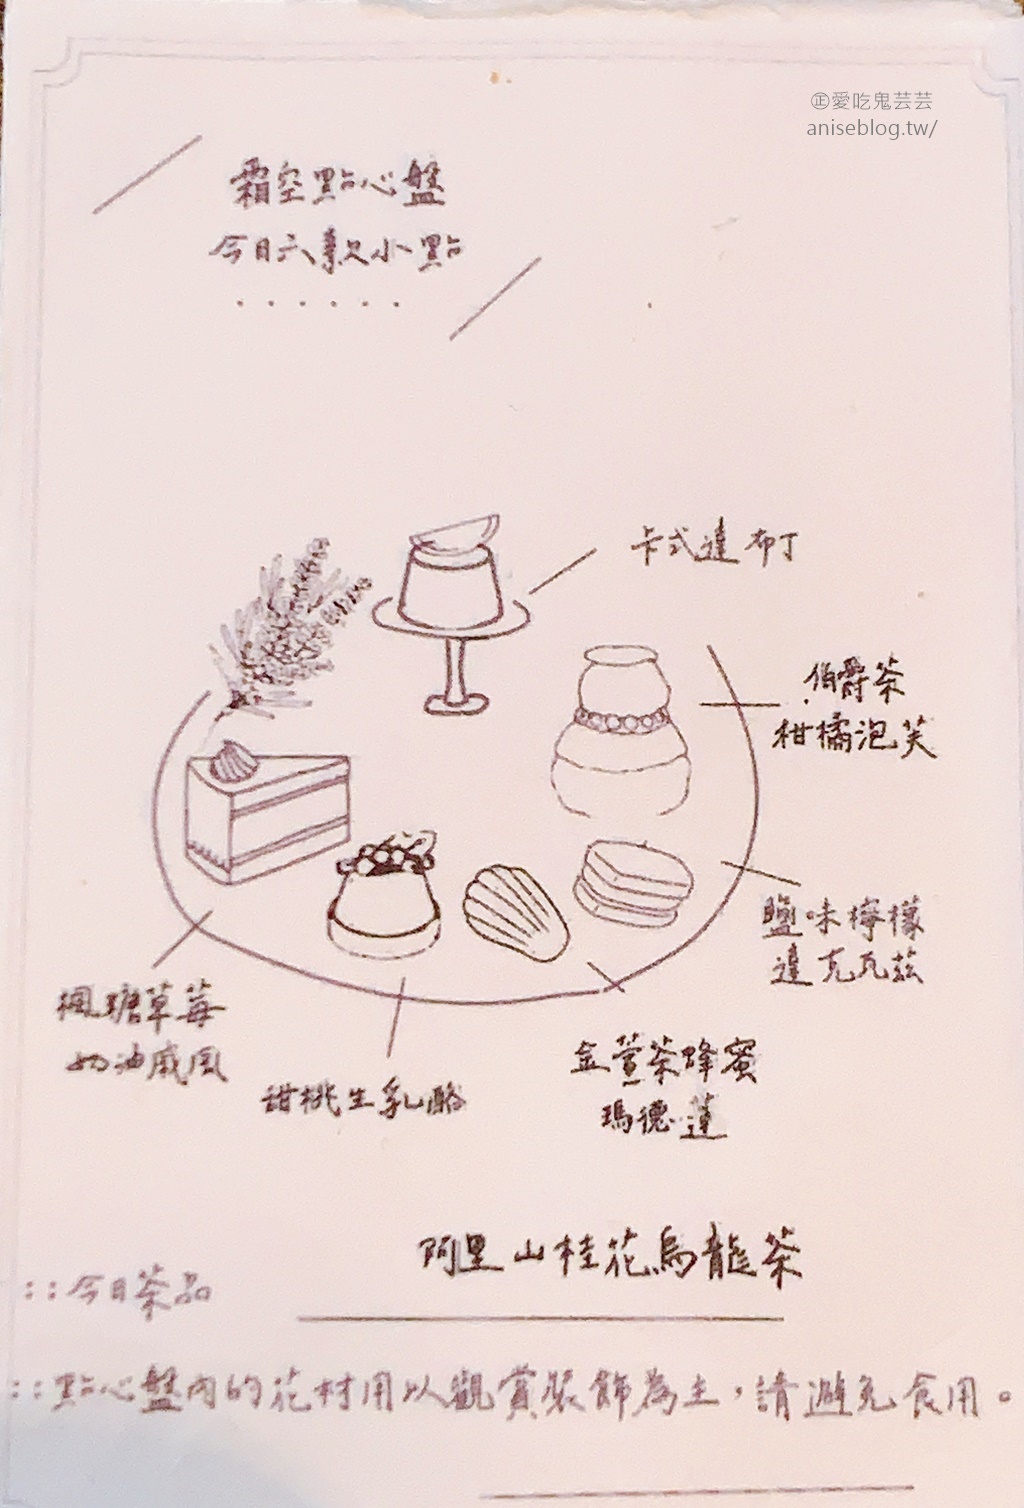 ㊣愛吃鬼芸芸
aniseblog.tw/
霜空點心盤
今日六款小點
......
卡式達布丁
伯爵茶
柑橘泡芙
鹽味檸檬
達克瓦茲
金萱茶蜂蜜
瑪德蓮
甜桃生乳酪
楓糖草莓
奶油戚風
阿里山桂花烏龍茶
::今日茶品
::點心盤內的花材用以觀賞裝飾為主，請避免食用。